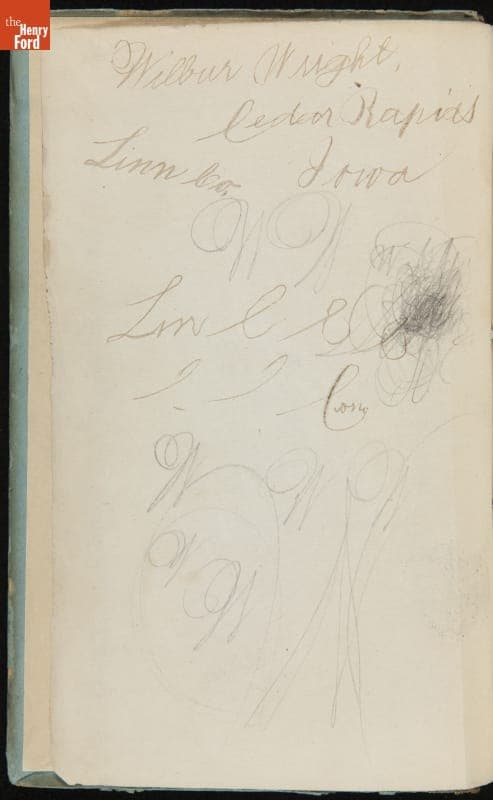 the
Henry
Ford
Wilbur Wright,
Cedar Rapids
Linn Co. Iowa
W W
Lin C
Con
W W W
W W